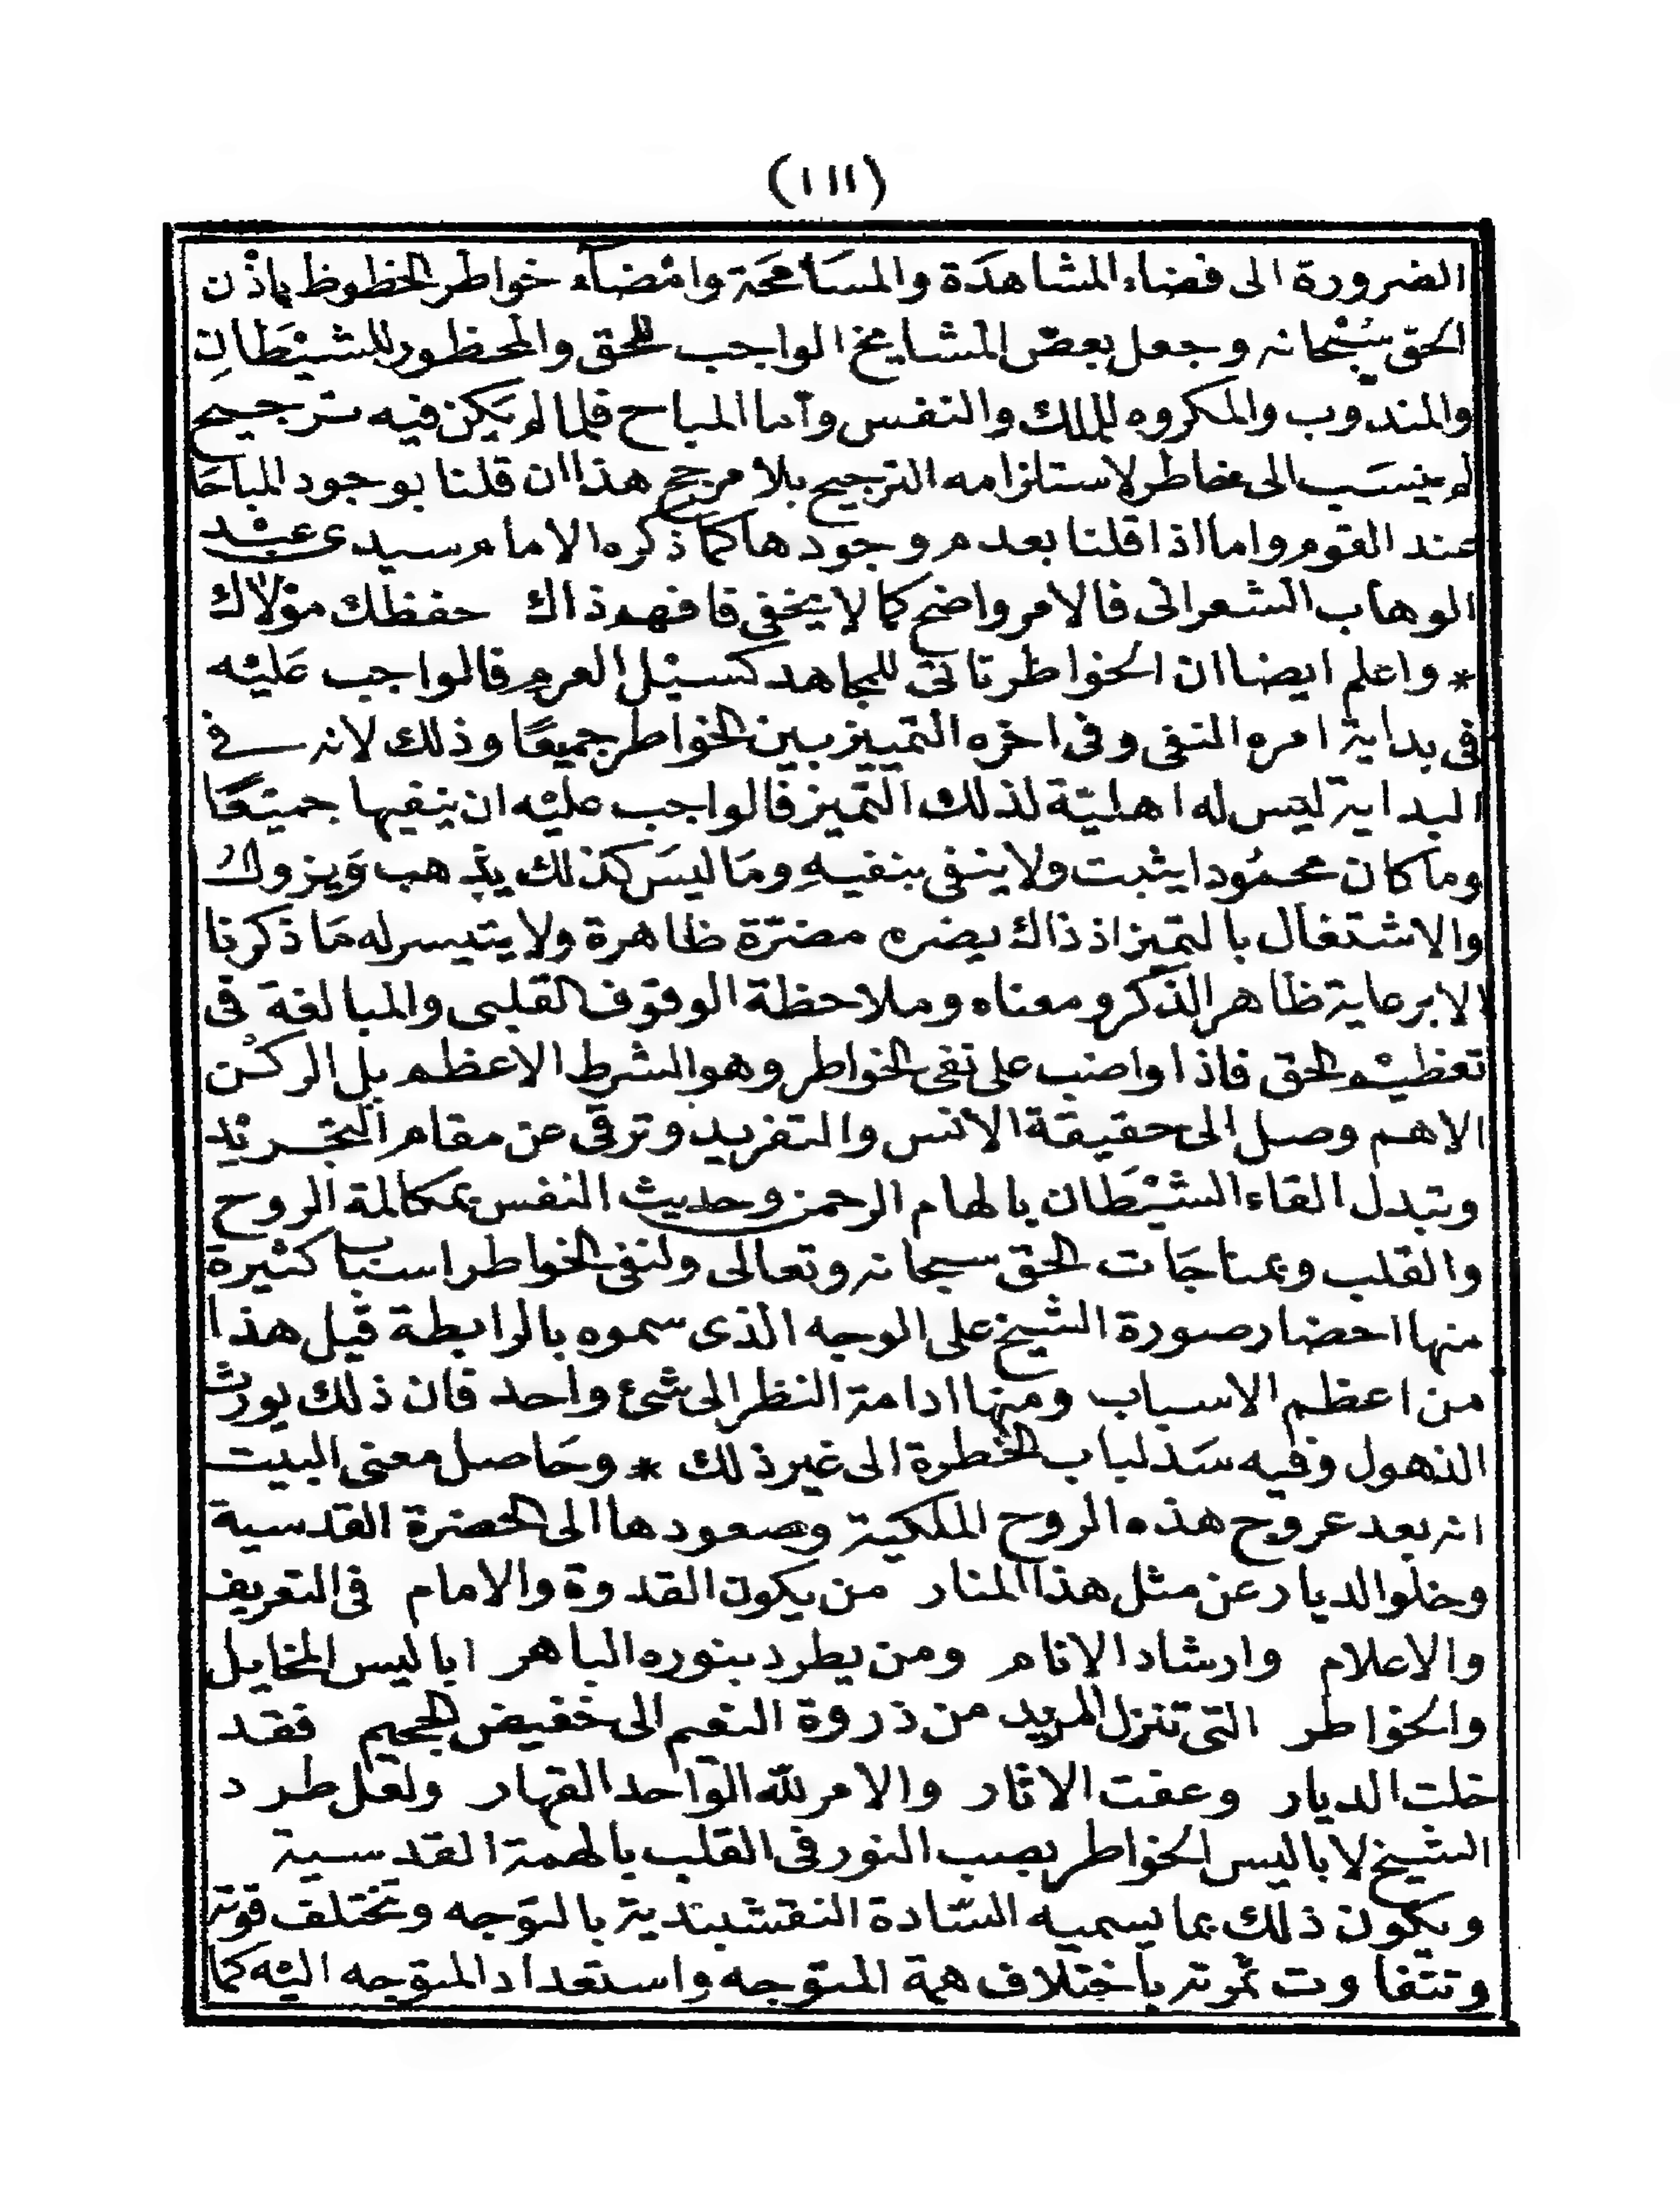 (١١١)
الضرورة الى فضاء المشاهدة والمسامحة وامضآء خواطر الحظوظ باذن
الحق سبحانه وجعل بعض المشايخ الواجب للحق والمحظور للشيطان
والمندوب والمكروه للملك والنفس وأما المباح فلما لم يكن فيه ترجيح
لم ينسب الى خاطر لاستلزامه الترجيح بلا مرجح هذا ان قلنا بوجود المباحا
عند القوم واما اذا قلنا بعدم وجودها كما ذكره الامام سيدى عبد
الوهاب الشعرانى فالامر واضح كما لا يخفى فافهم ذاك حفظك مولاك
* واعلم ايضا ان الخواطر تاتى للمجاهد كسيل العرم فالواجب عليه
فى بداية امره النفى وفى اخره التمييز بين الخواطر جميعًا وذلك لانه فى
البداية ليس له اهلية لذلك التميز فالواجب عليه ان ينفيها جميعًا
وما كان محمودا يثبت ولا ينفى بنفيه وما ليس كذلك يذهب ويزول
والاشتغال بالتميز اذ ذاك يضره مضرّة ظاهرة ولا يتيسر له ما ذكرنا
الا برعاية ظاهر الذكر ومعناه وملاحظة الوقوف القلبى والمبالغة فى
تعظيم الحق فاذا واضب على نفى الخواطر وهو الشرط الاعظم بل الركن
الاهم وصل الى حقيقة الانس والتفريد وترقى عن مقام التجريد
وتبدل القاء الشيطان بالهام الرحمن وحديث النفس بمكالمة الروح
والقلب وبمناجات الحق سبحانه وتعالى ولنفى الخواطر اسباب كثيرة
منها احضار صورة الشيخ على الوجه الذى سموه بالرابطة قيل هذا
من اعظم الاسباب ومنها ادامة النظر الى شئ واحد فان ذلك يورث
الذهول وفيه سد لباب الخطرة الى غير ذلك * وحاصل معنى البيت
انه بعد عروج هذه الروح الملكية وصعودها الى الحضرة القدسية
وخلو الديار عن مثل هذا المنار من يكون القدوة والامام فى التعريف
والاعلام وارشاد الانام ومن يطرد بنوره الباهر اباليس المخايل
والخواطر التى تنزل المريد من ذروة النعيم الى خفيض الجحيم فقد
خلت الديار وعفت الاثار والامر لله الواحد القهار ولعل طرد
الشيخ لاباليس الخواطر بصب النور فى القلب بالهمة القدسية
ويكون ذلك بما يسميه السّادة النقشبندية بالتوجه وتختلف قوته
وتتفاوت ثمرته باختلاف همة المتوجه واستعداد المتوجه اليه كما